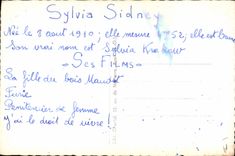 Sylvia Sidney
Née le 8 août 1910; elle mesure 1m52, elle est brune
Son vrai nom est Sylvia Kosow
- Ses Films -
La fille du bois Maudit
Furie
Penitencier de femme
J'ai le droit de vivre!